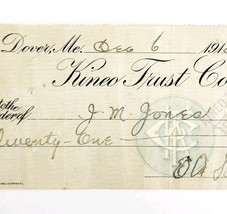 Dover, Me. Dec 6 191
Kineo Trust Co
to the
order of J. M. Jones
Twenty-One